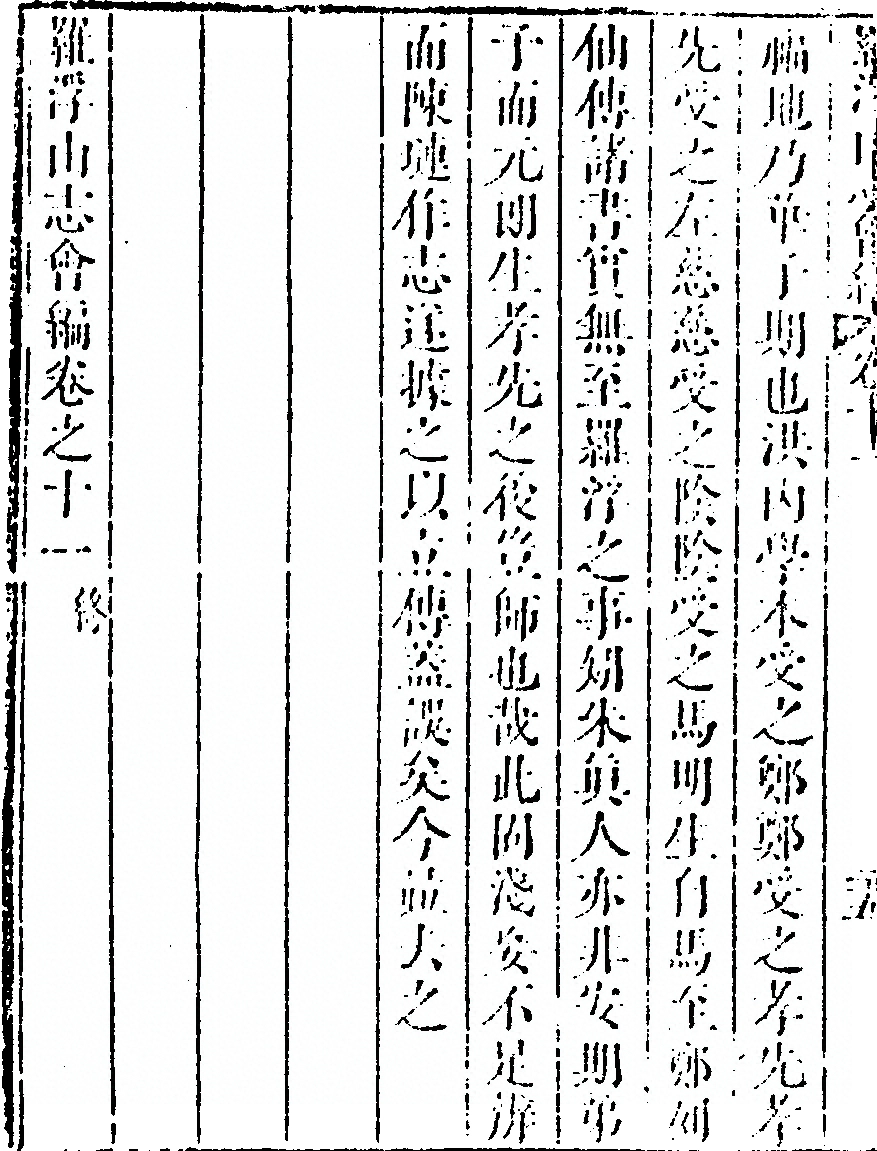 羅浮山志會編 卷十一
福地乃華子期也洪内學本受之鄭鄭受之孝先孝
先受之左慈慈受之陰陰受之馬明生自馬至鄭列
仙傳諸書實無至羅浮之事矧朱真人亦非安期弟
子而元朗生孝先之後豈師也哉此固淺妄不足辨
而陳璉作志遂據之以立傳蓋誤矣今竝去之
羅浮山志會編卷之十一 終